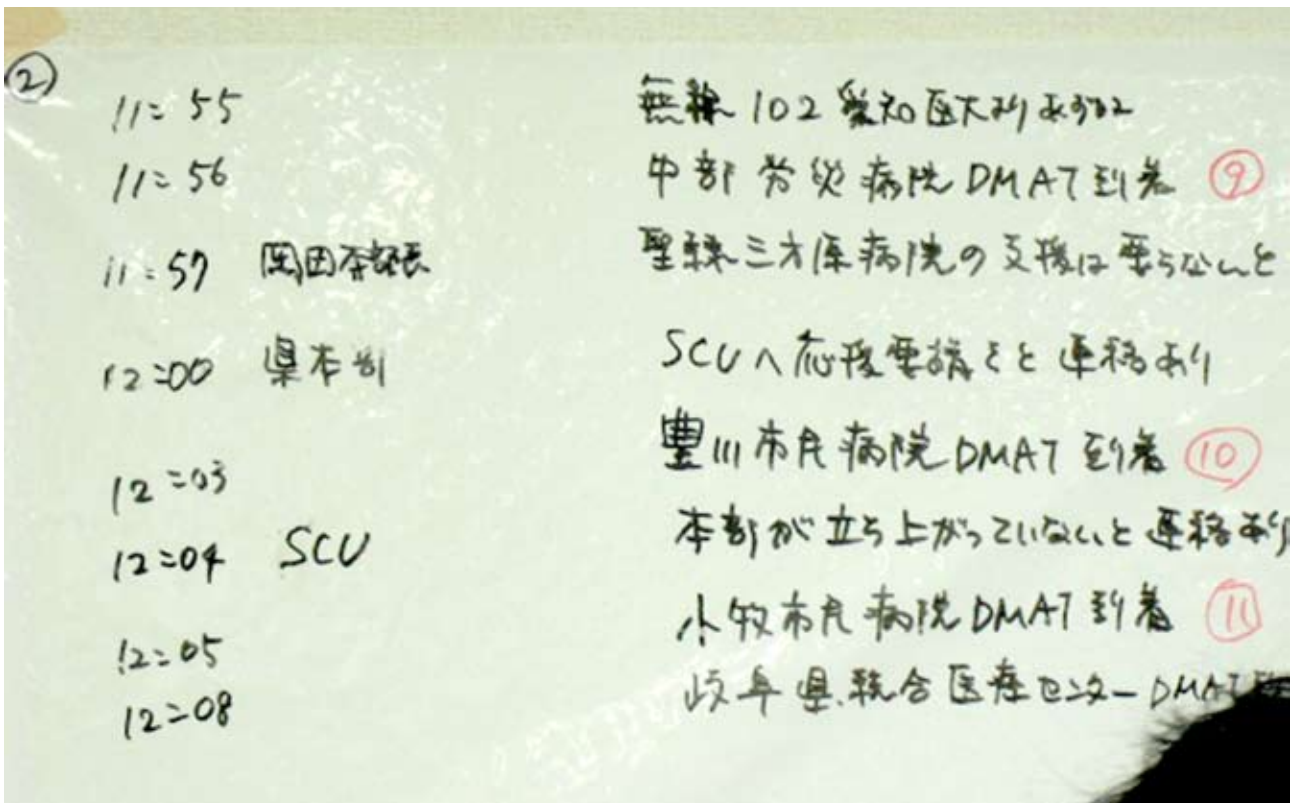 ②
11:55 無線102 愛知医大より
11:56 中部労災病院DMAT到着 ⑨
11:57 岡田本部長 聖隷三方原病院の支援は要らないと
12:00 県本部 SCUへ応援要請 と連絡あり
12:03 豊川市民病院DMAT到着 ⑩
12:04 SCU 本部が立ち上がっていないと連絡あり
12:05 小牧市民病院DMAT到着 ⑪
12:08 岐阜県総合医療センターDMAT